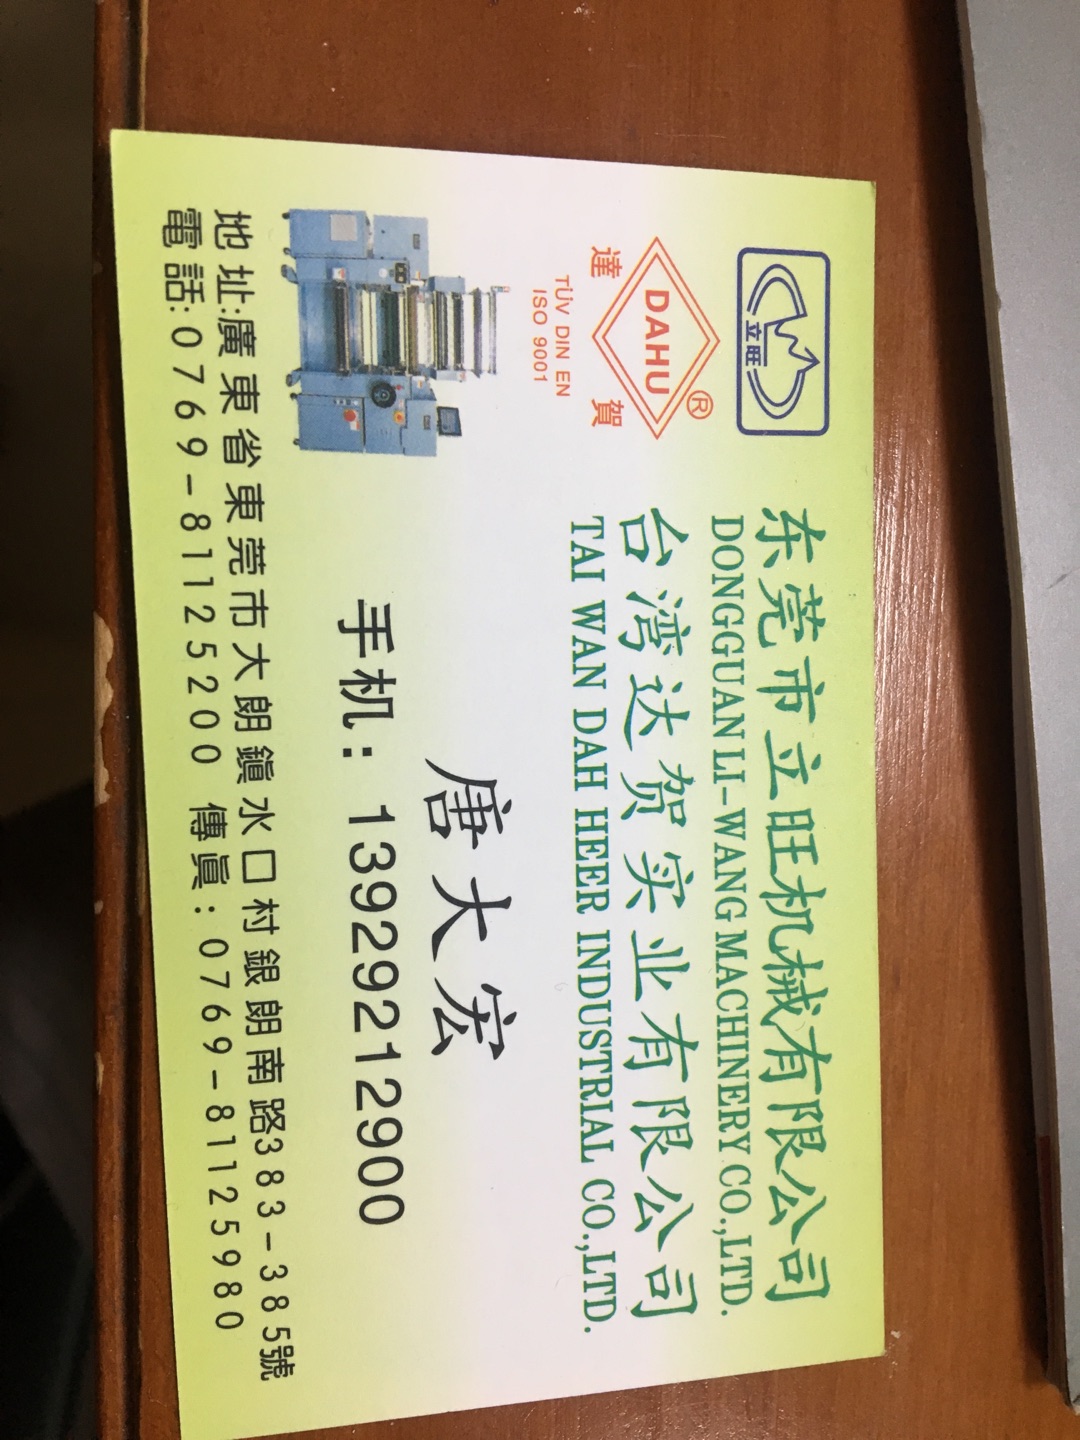 立旺
东莞市立旺机械有限公司
DONGGUAN LI-WANG MACHINERY CO.,LTD.
DAHU®
達 賀
台湾达贺实业有限公司
TAI WAN DAH HEER INDUSTRIAL CO.,LTD.
TÜV DIN EN
ISO 9001
唐大宏
手机：13929212900
地址:廣東省東莞市大朗鎮水口村銀朗南路383-385號
電話:0769-81125200 傳真:0769-81125980